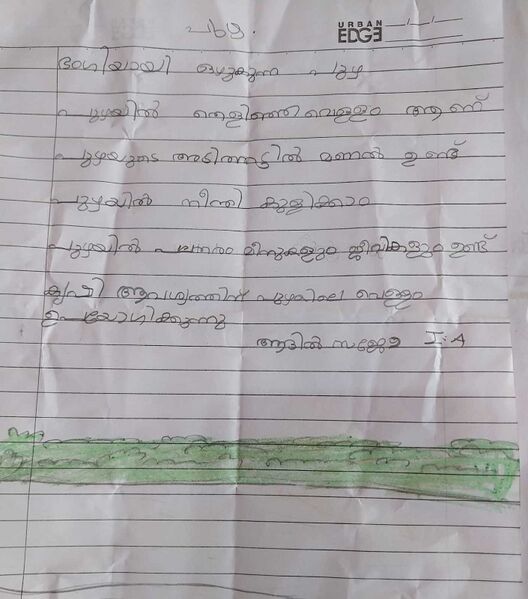 പുഴ.
URBAN
EDGE
ഭംഗിയായി ഒഴുകുന്ന പുഴ
പുഴയിൽ തെളിഞ്ഞ വെള്ളം ആണ്
പുഴയുടെ അടിത്തട്ടിൽ മണൽ ഉണ്ട്
പുഴയിൽ നീന്തി കുളിക്കാം
പുഴയിൽ മീനുകളും ജീവികളും ഉണ്ട്
കൃഷി ആവശ്യത്തിന് പുഴയിലെ വെള്ളം
ഉപയോഗിക്കുന്നു
ആദിൽ I.A